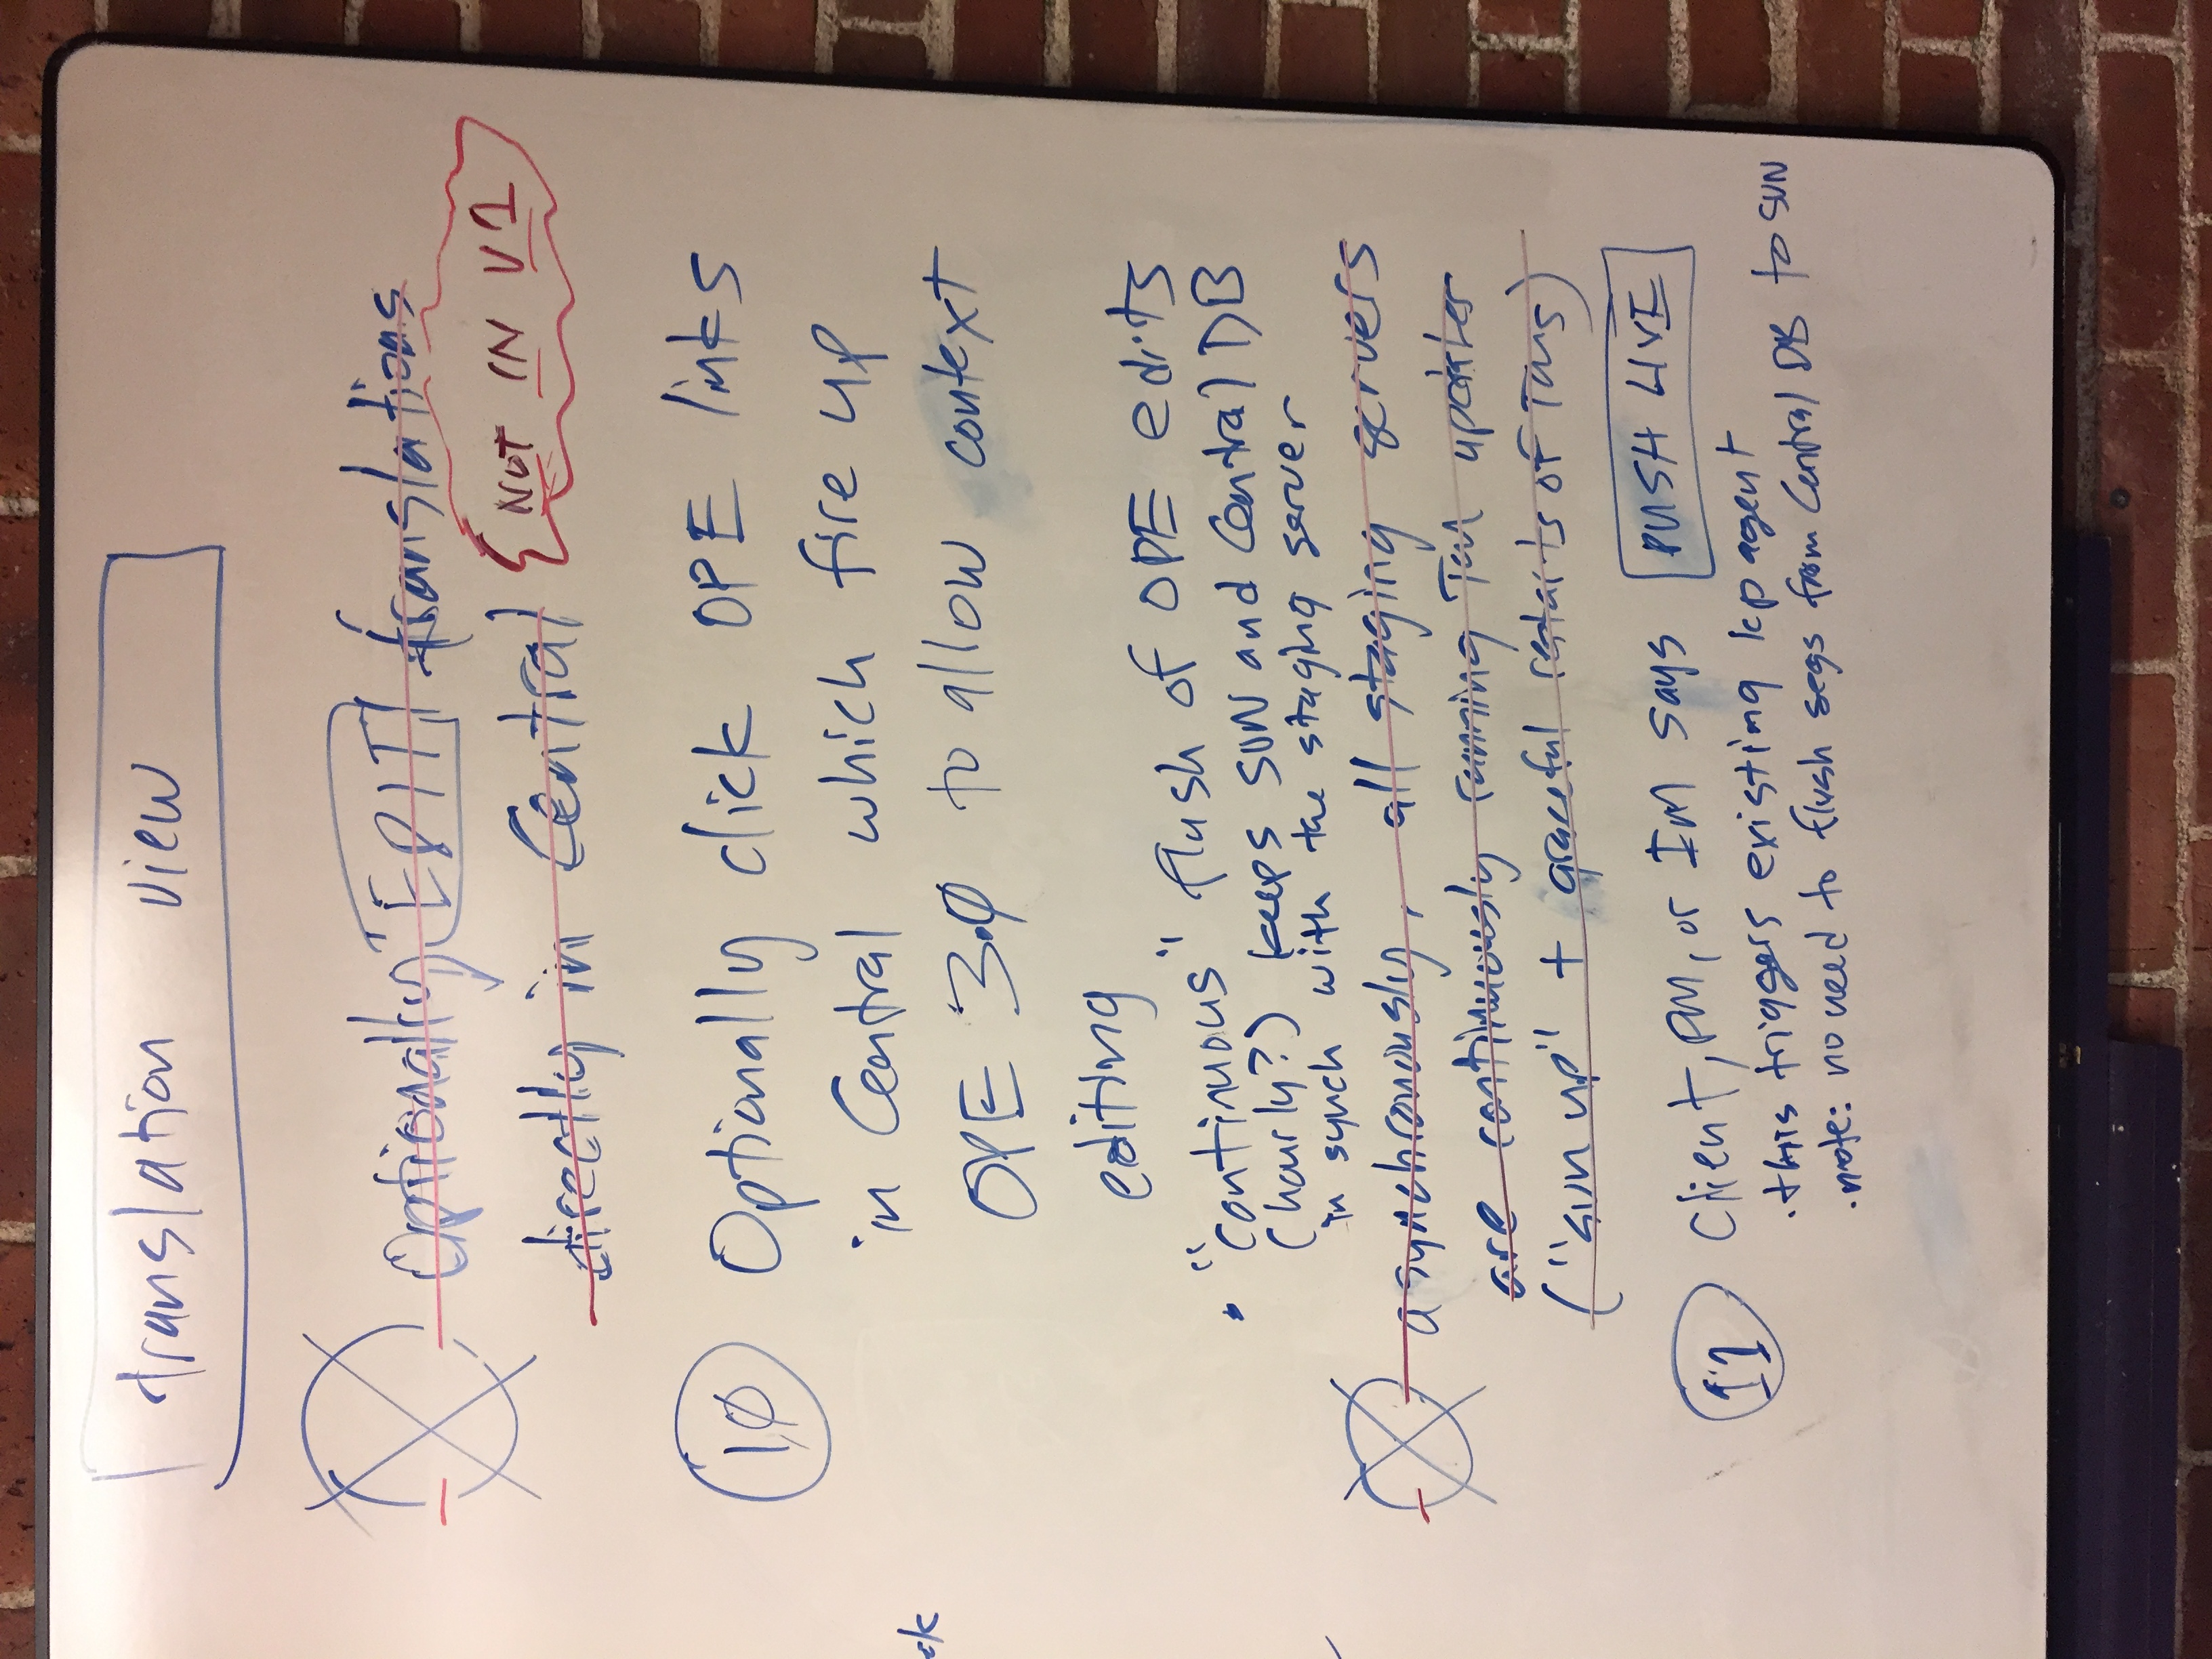 translation view
Optionally EDIT translations
directly in Central {NOT IN V1
10 Optionally click OPE links
in Central which fire up
OPE 3.0 to allow context
editing
• "continuous" flush of OPE edits
(hourly?) keeps SUN and Central DB
in synch with the staging server
asynchronously, all staging servers
are continuously running Tau updater
("sun up" + graceful restarts of Taus)
11 Client, PM, or IM says PUSH LIVE
• this triggers existing kp agent
• note: no need to flush segs from Central DB to SUN